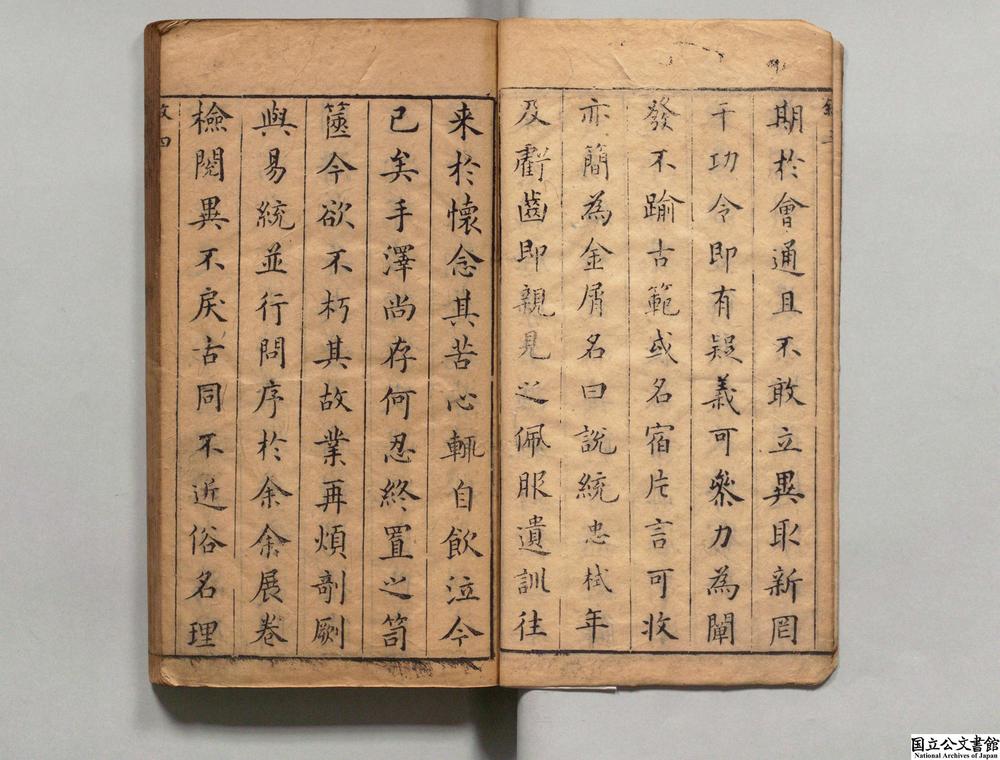 期於會通且不敢立異取新罔
干功令即有疑義可參力為闡
發不踰古範或名宿片言可收
亦簡為金屑名曰說統忠栻年
及齠齒即親見之佩服遺訓往
来於懷念其苦心輒自飲泣今
已矣手澤尚存何忍終置之笥
篋今欲不朽其故業再煩剞劂
與易統並行問序於余余展卷
檢閱異不戾古同不近俗名理
四
国立公文書館
National Archives of Japan